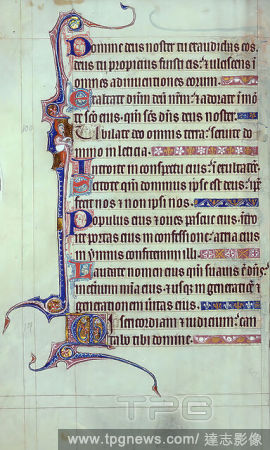 Domine deus noster tu exaudiebas eos.
deus tu propicius fuisti eis: & ulciscens i
omnes adinuentiones eorum.
Exaltate dnm deu nrm: & adorate i mo
te sco eius. qm scs dns deus noster.
Iubilate deo omnis terra: seruite do
mino in leticia.
Introite in conspectu eius: i exultacoe.
Scitote qm dominus ipse est deus: ip
fecit nos & non ipsi nos.
Populus eius & oues pascue eius. itro
ite portas eius in confessione: atria eius
in ymnis confitemini illi.
Laudate nomen eius qm suauis e dns:
eternum mia eius. & usq in generacoe &
generationem ueritas eius.
Misericordiam & iudicium: can
tabo tibi domine.
TPG
www.tpgnews.com/達志影像